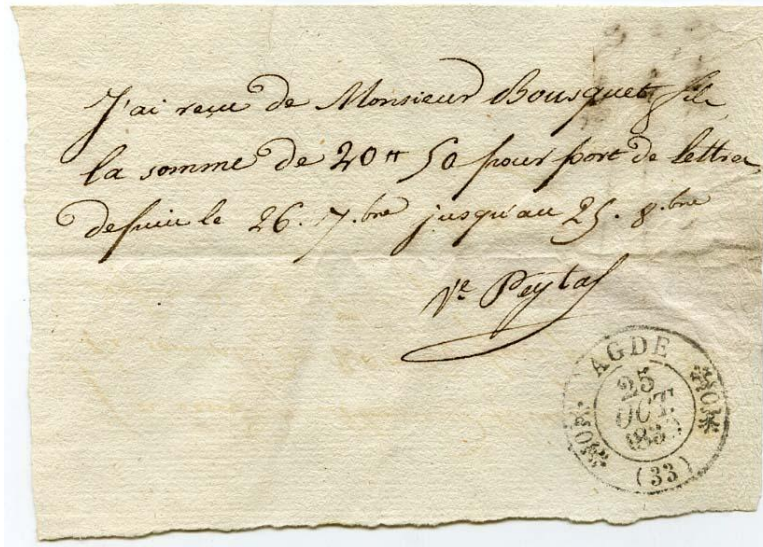 J'ai reçu de Monsieur Bousquet fils
la somme de 20 tt 50 pour port de lettres
depuis le 26. 7.bre jusqu'au 25. 8.bre
Ve Peytal
AGDE
25
OCT.
(33)